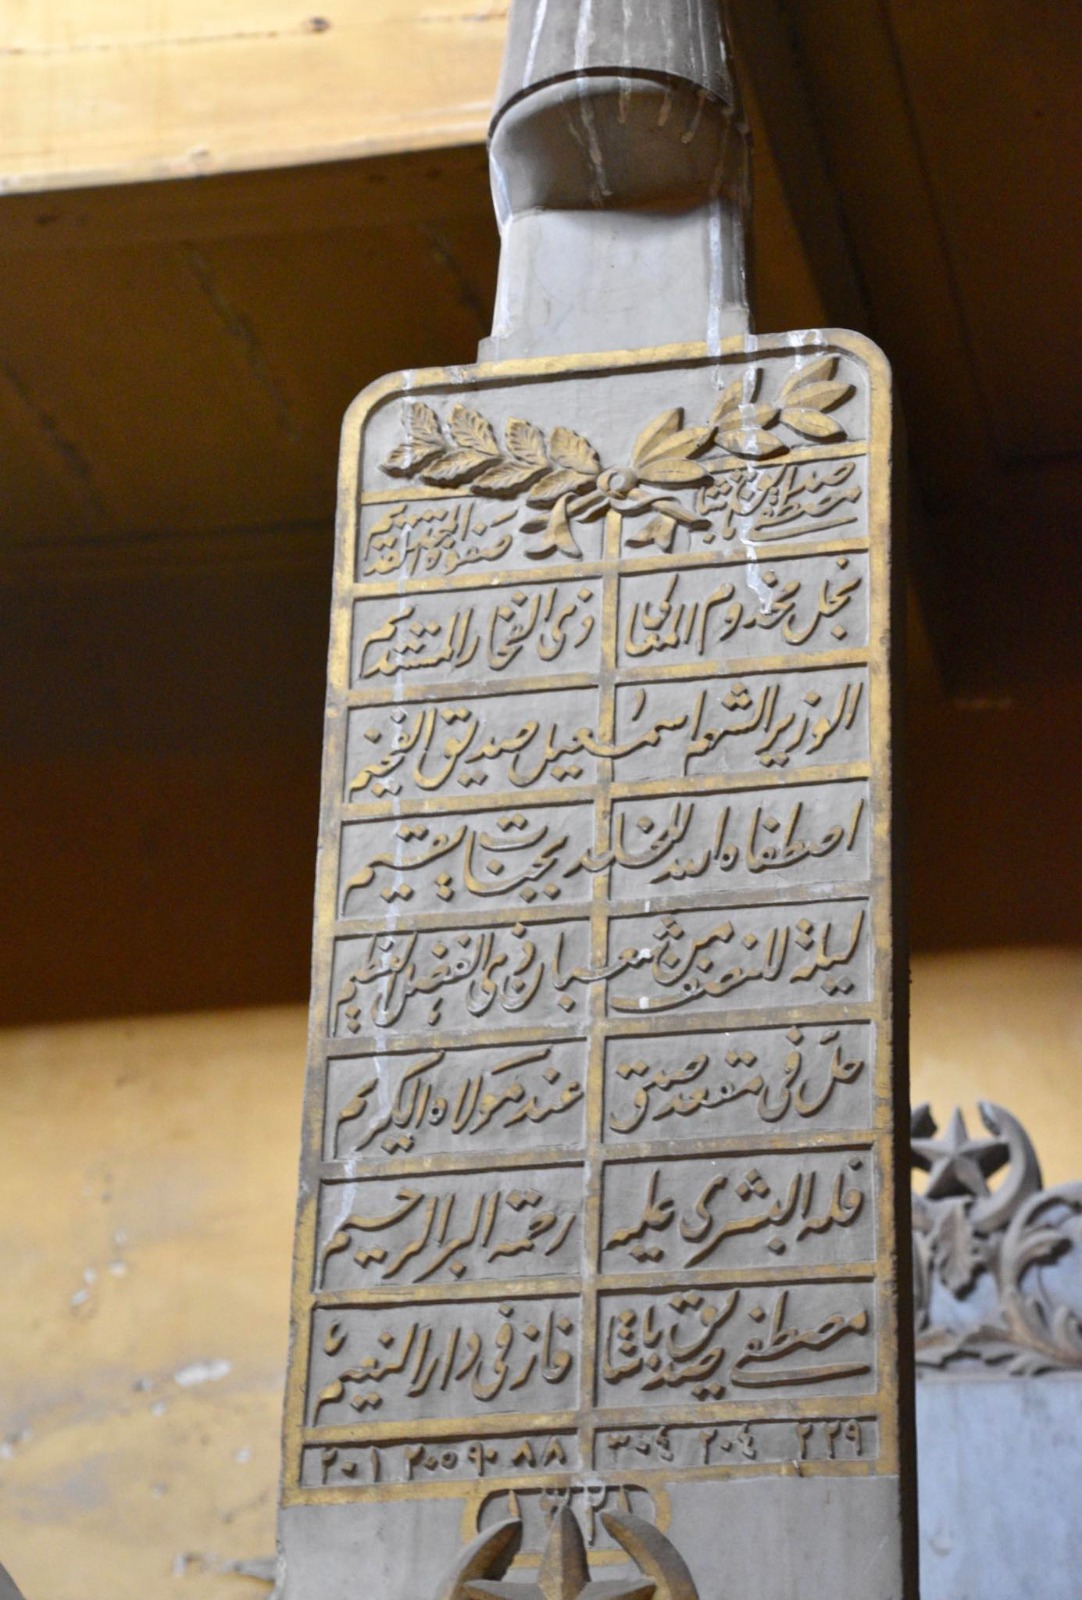 مصطفى صديق باشا صفوة المجد القديم
نجل مخدوم المعالي ذي الفخار المستديم
الوزير الشهم اسمعيل صديق الفخيم
اصطفاه الله للخلد بجنات يقيم
ليلة النصف من شعبان ذي الفضل العظيم
حل في مقعد صدق عند مولاه الكريم
فله البشرى عليه رحمة البر الرحيم
مصطفى صديق باشا فاز في دار النعيم
٢٢٩ ٢٠٤ ٣٠٤ ٨٨ ٩٠ ٢٠٥ ٢٠١